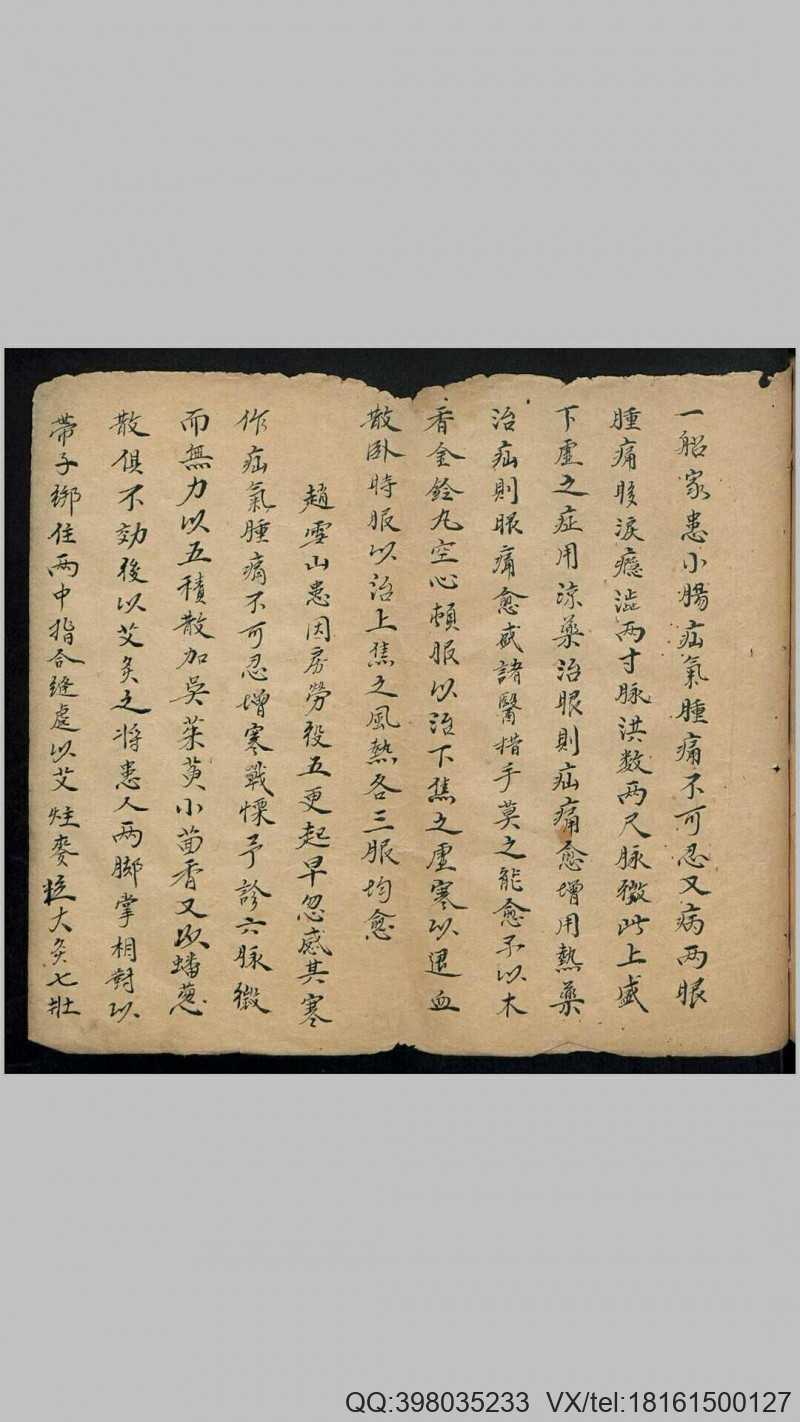 一船家患小腸疝氣腫痛不可忍又病兩眼
腫痛眵淚癮澁兩寸脉洪数兩尺脉微此上盛
下虚之症用涼藥治眼則疝痛愈增用熱藥
治疝則眼痛愈盛諸醫措手莫之能愈予以木
香金鈴丸空心頓服以治下焦之虚寒以退血
散卧時服以治上焦之風熱各三服均愈
趙雪山患因房勞役五更起早忽感其寒
作疝氣腫痛不可忍增寒戰慄予診六脉微
而無力以五積散加吳茱萸小茴香又以蟠葱
散俱不効後以艾灸之将患人兩脚掌相對以
帶子綁住兩中指合縫處以艾炷麥粒大灸七壯
QQ:398035233 VX/tel:18161500127